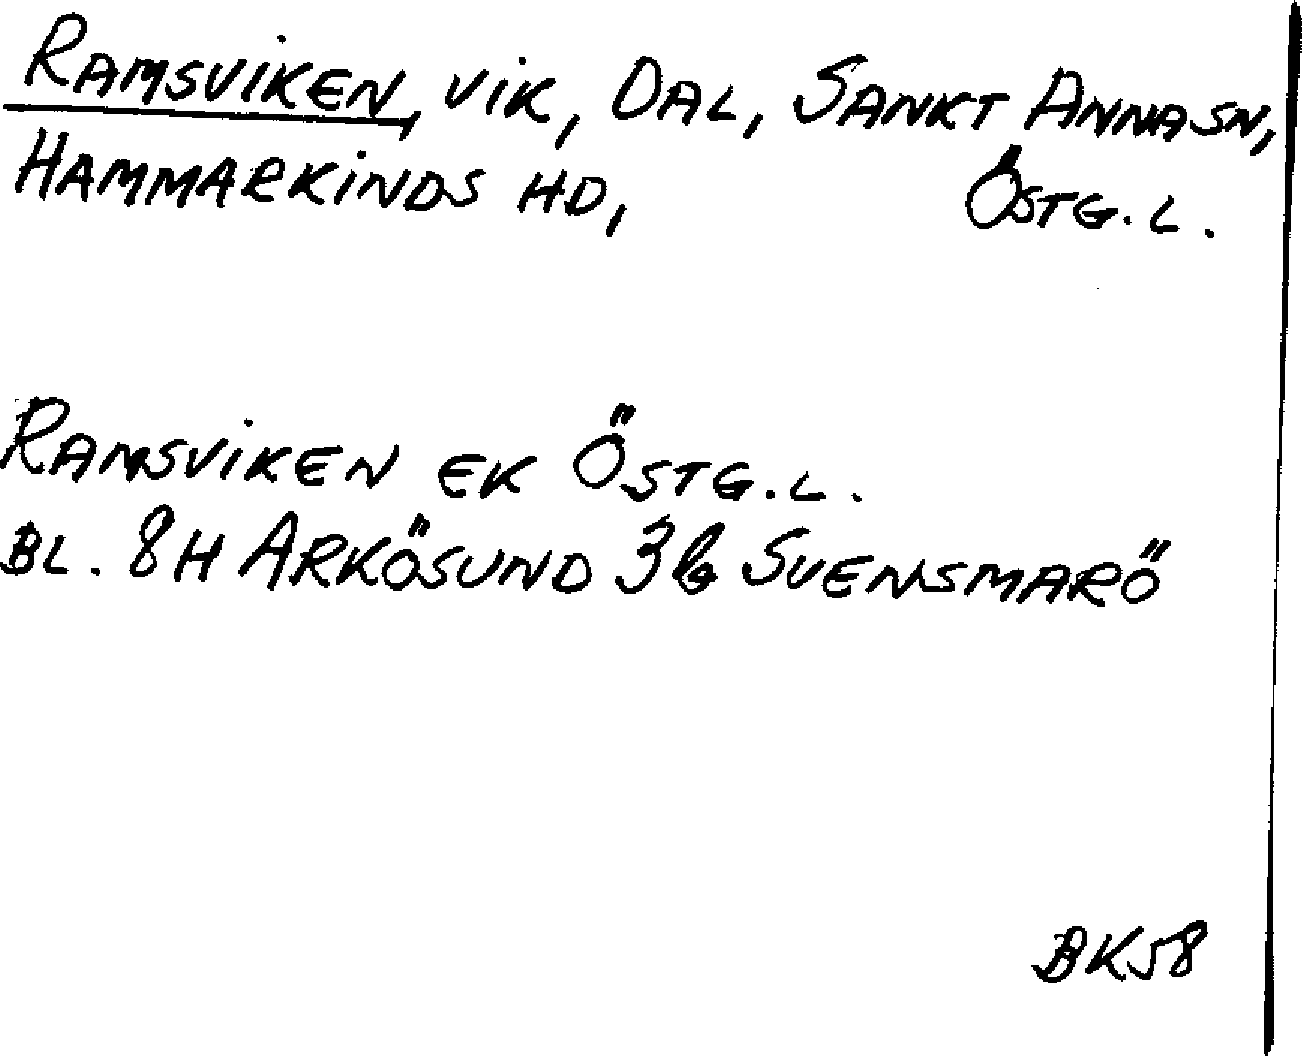 RAMSVIKEN, VIK, DAL, SANKT ANNA SN,
HAMMARKINDS HD, ÖSTG. L.
RAMSVIKEN EK ÖSTG. L.
BL. 8H ARKÖSUND 3b SVENSMARÖ
BK58